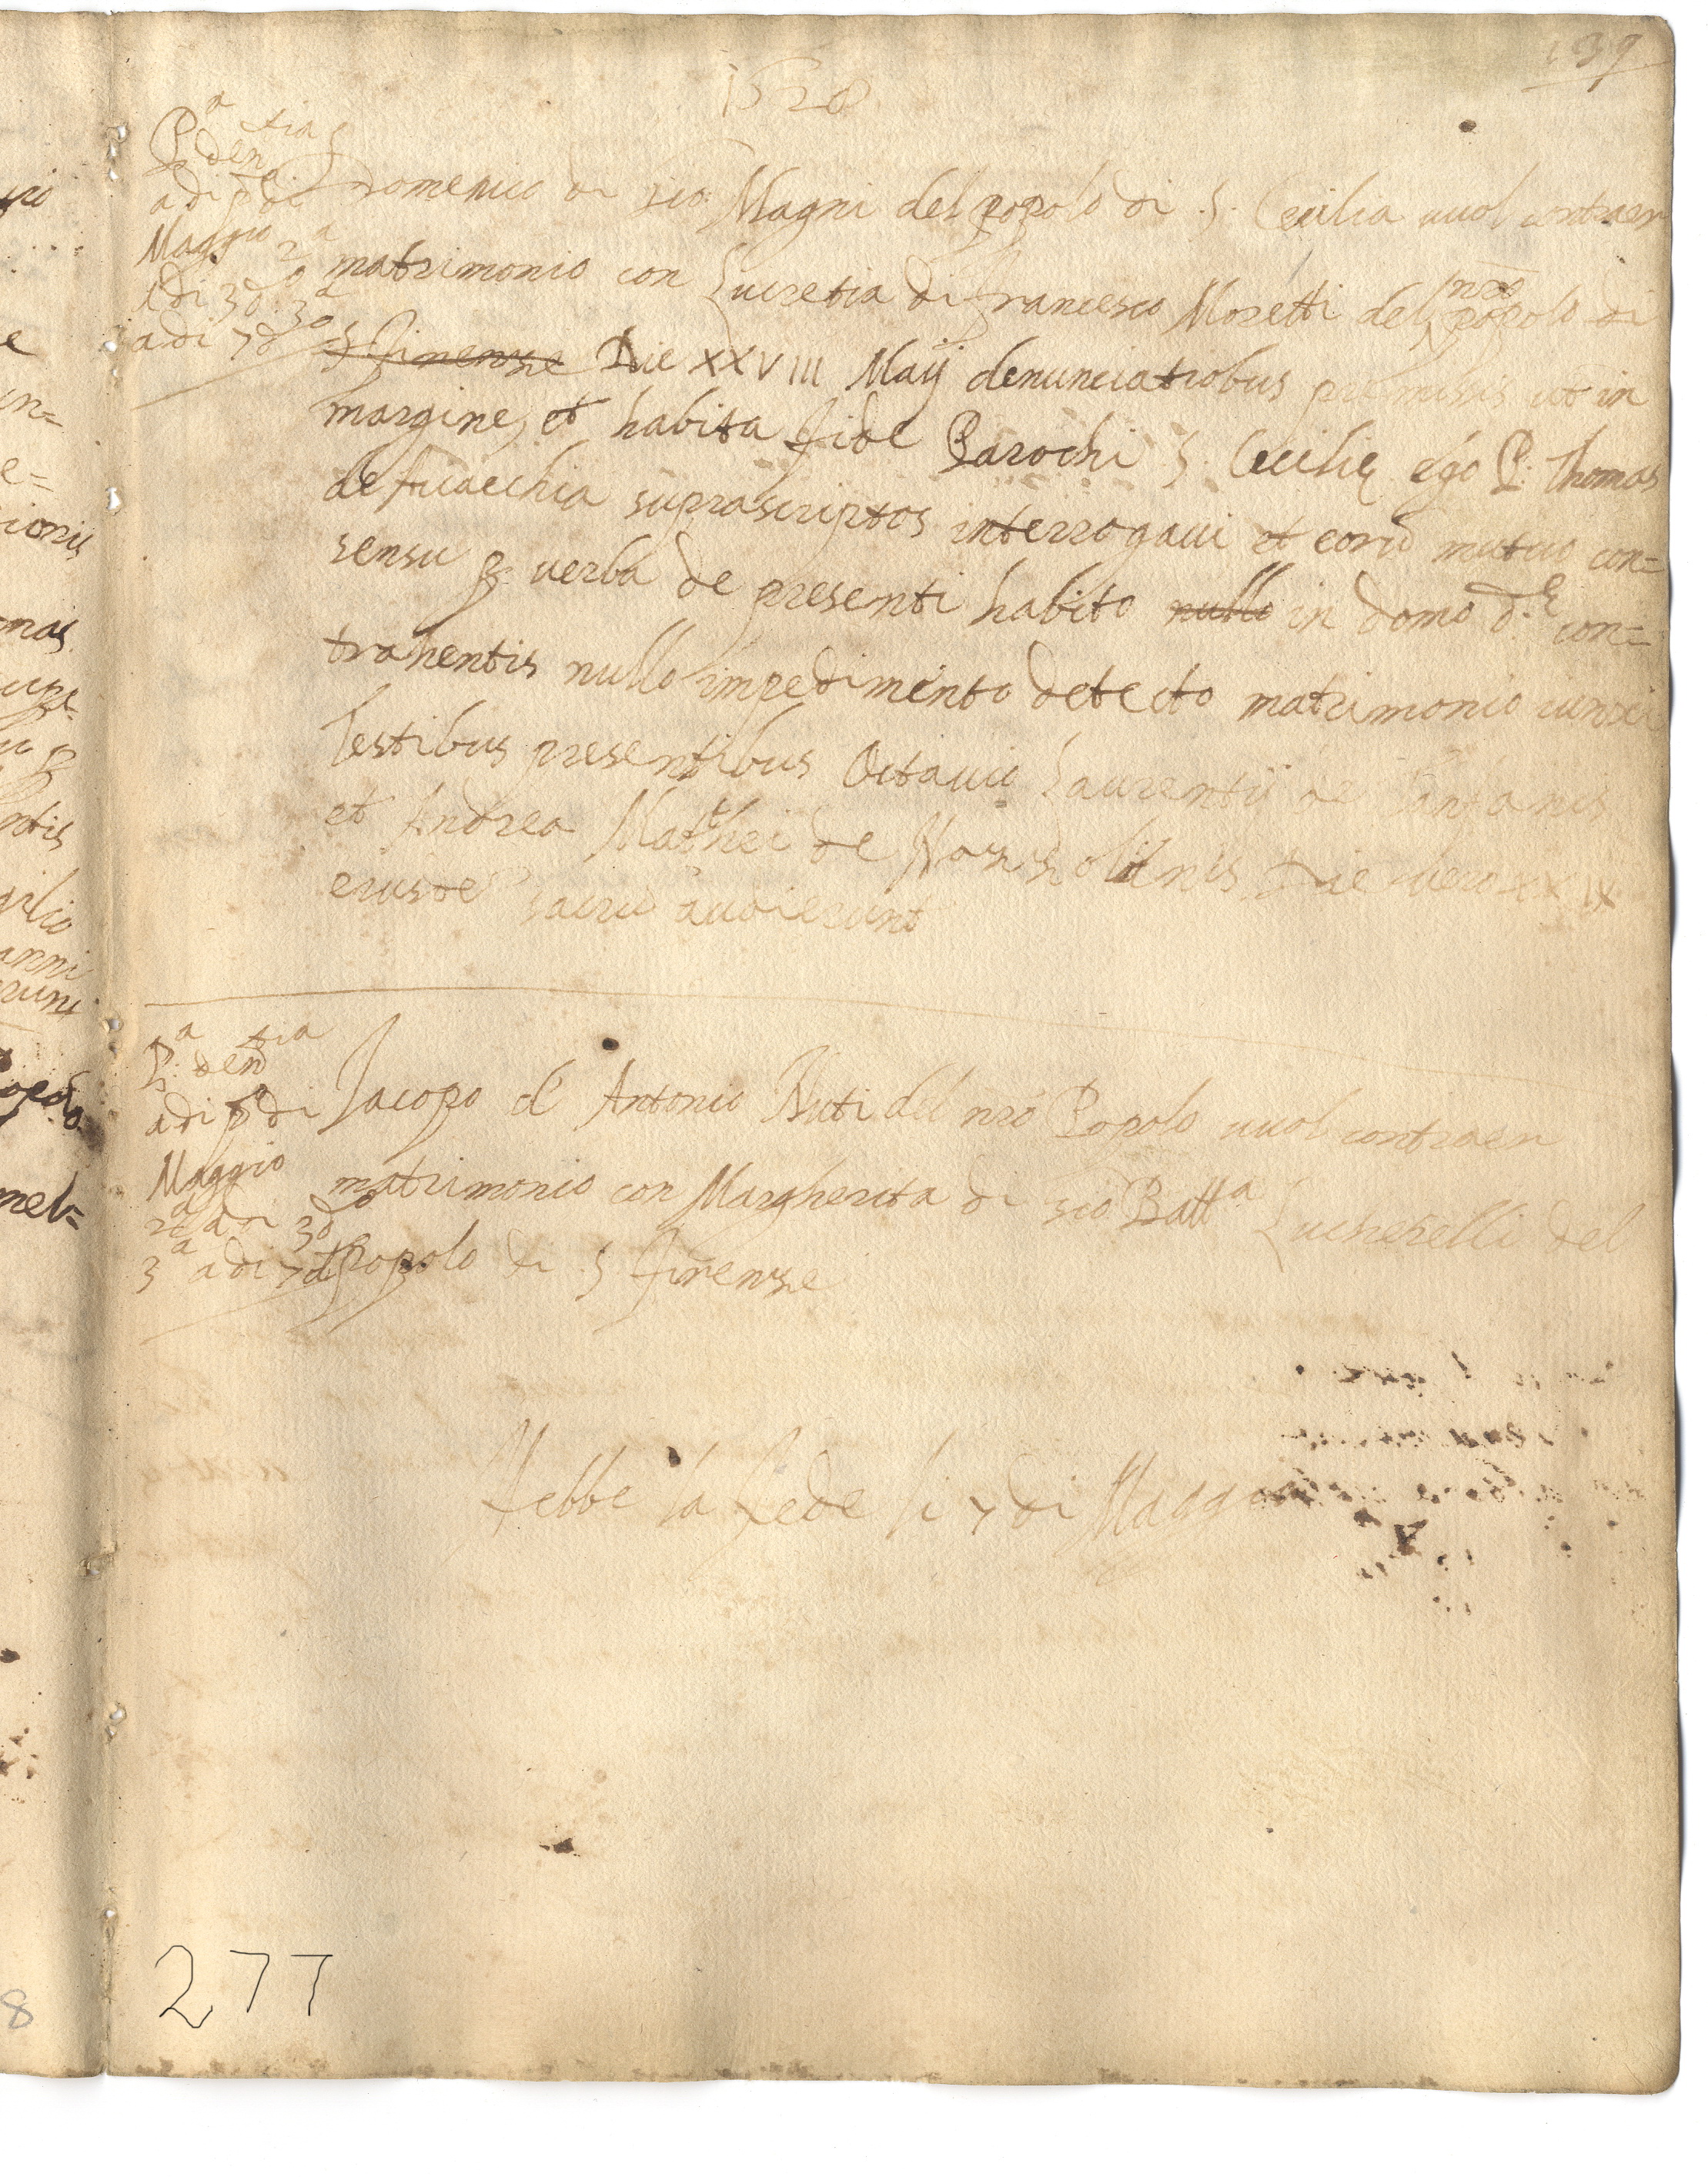 139
1528
P.a den.tia
adi po di
Maggio 2a
adi 3 do 3a
adi 7 do
Domenico di Gio: Magni del popolo di S. Cecilia vuol contraer
matrimonio con Lucretia di francesco Moretti del nro popolo di
S firenze Die XXVIII Maij denunciatiobus premissis ut in
margine, et habita fide Parochi S. Cecilie ego P. Thomas
de fucechia suprascriptos interrogaui et eorū mutuo con=
sensu p. verba de presenti habito nullo in domo d.e con=
trahentis nullo impedimento detecto matrimonio iunxi
Testibus presentibus Octauio Laurentij de
et Andrea Matthei de Die vero XXIX
eiusde sacrū audierunt
P.a den tia
adi po di
Maggio
2a adi 3 do
3a adi 7 do
Jacopo d' Antonio Nuti del nro Popolo vuol contraer
matrimonio con Margherita di Gio Batta Lucherelli del
Popolo di S firenze
Hebbe la fede li 7 di Maggio
277